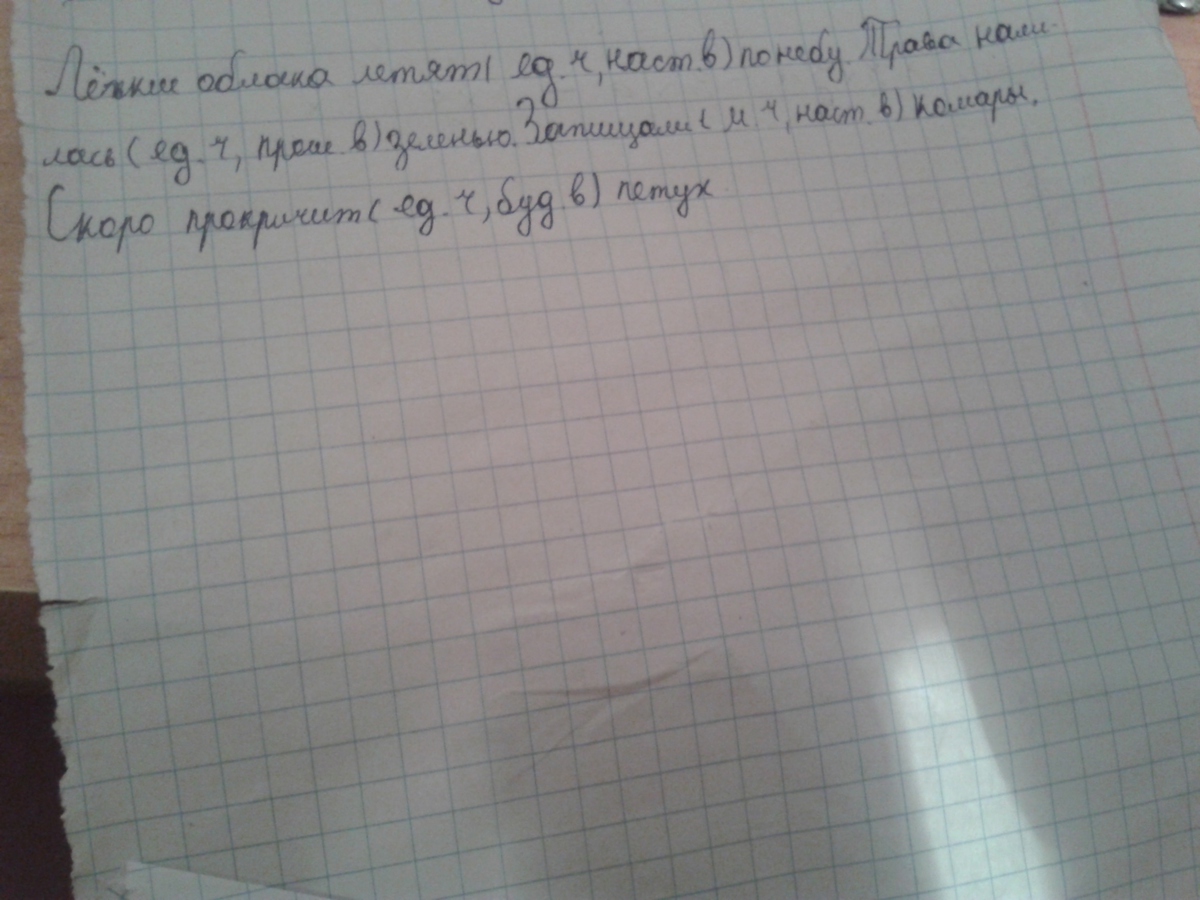 Лёгкие облака летят( ед. ч, наст. в) по небу. Трава нали-
лась ( ед. ч, прош. в) зеленью. Запищали ( м. ч, наст. в) комары.
Скоро прокричит( ед. ч, буд. в) петух